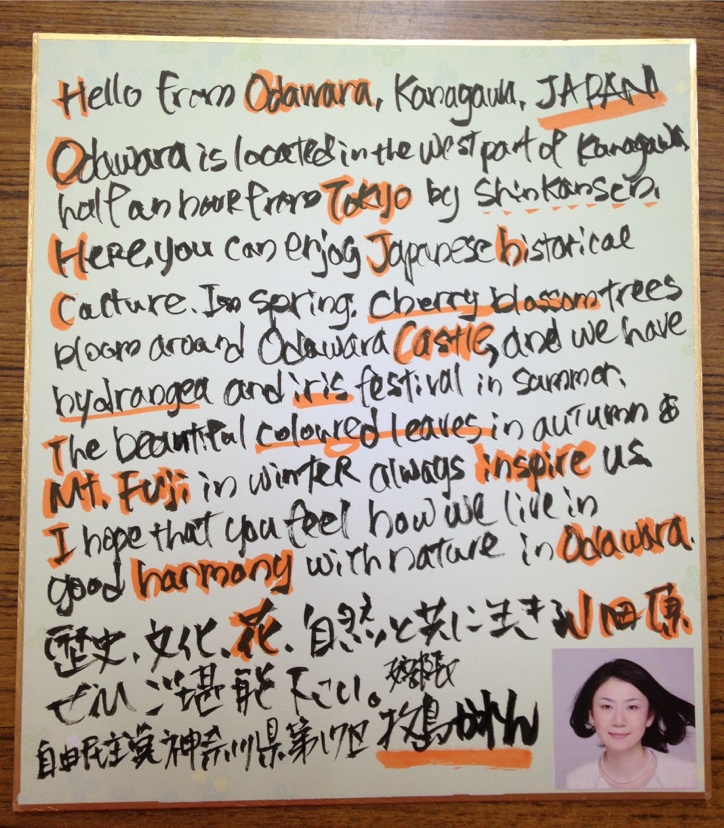 Hello from Odawara, Kanagawa, JAPAN
Odawara is located in the west part of Kanagawa
half an hour from Tokyo by Shinkansen.
Here, you can enjoy Japanese historical
Culture. In spring, cherry blossom trees
bloom around Odawara Castle, and we have
hydrangea and iris festival in summer.
The beautiful coloured leaves in autumn &
Mt. Fuji in winter always inspire us.
I hope that you feel how we live in
good harmony with nature in Odawara.
歴史、文化、花、自然と共に生きる小田原
ぜひご堪能下さい。支部長
自由民主党神奈川県第17区 牧島かれん